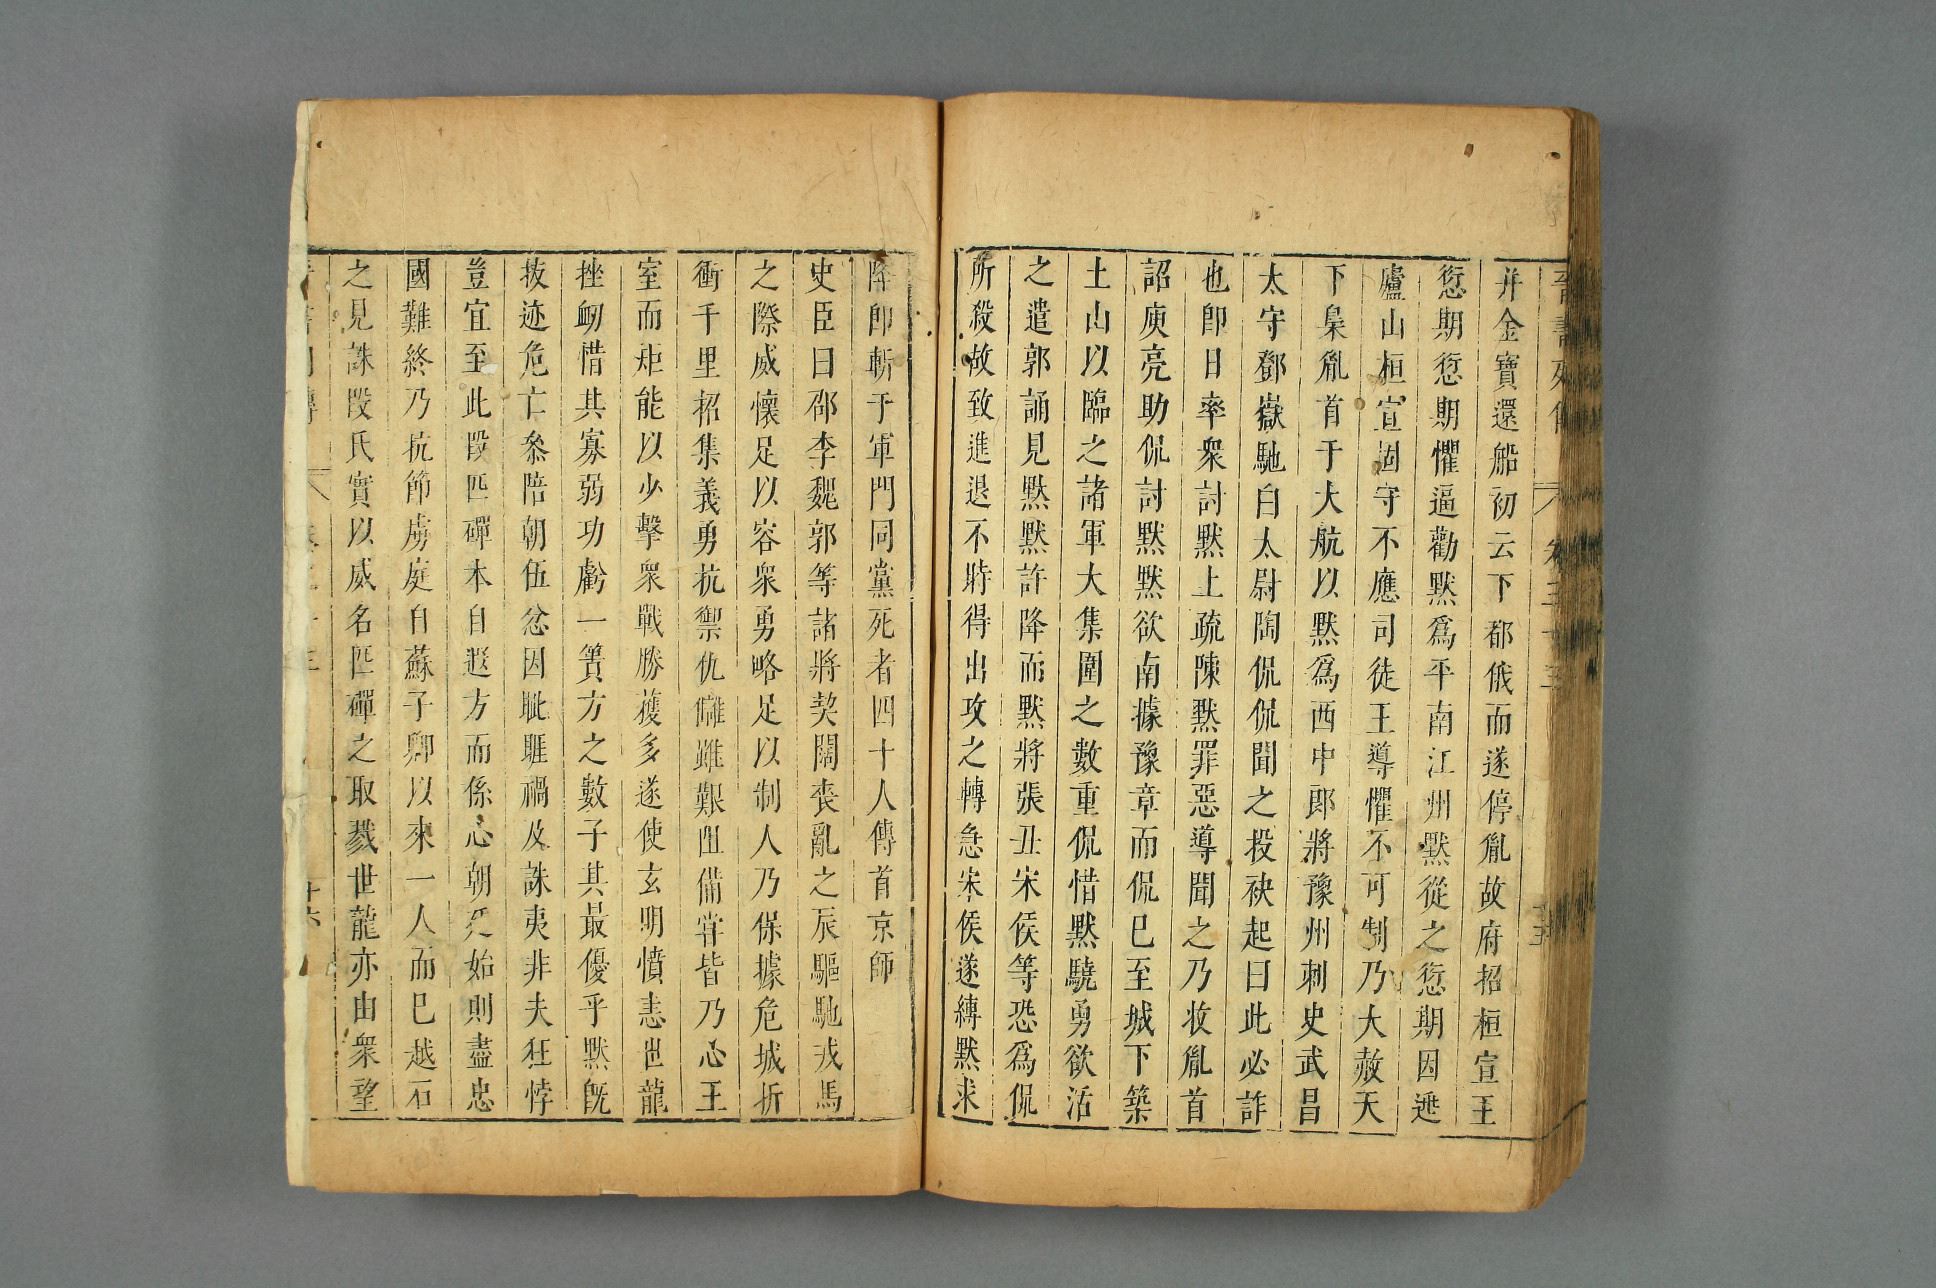 晉書列傳 卷三十三 十五
并金寶還船初云下都俄而遂停胤故府招桓宣王
愆期愆期懼逼勸默為平南江州默從之愆期因逃
廬山桓宣固守不應司徒王導懼不可制乃大赦天
下梟胤首于大航以默為西中郎將豫州刺史武昌
太守鄧嶽馳白太尉陶侃侃聞之投袂起曰此必詐
也卽日率衆討默上疏陳默罪惡導聞之乃收胤首
詔庾亮助侃討默默欲南據豫章而侃已至城下築
土山以臨之諸軍大集圍之數重侃惜默驍勇欲活
之遣郭誦見默默許降而默將張丑宋侯等恐為侃
所殺故致進退不時得出攻之轉急宋侯遂縛默求
降卽斬于軍門同黨死者四十人傳首京師
史臣曰邵李魏郭等諸將契闊喪亂之辰驅馳戎馬
之際威懷足以容衆勇略足以制人乃保據危城折
衝千里招集義勇抗禦仇讎雖艱阻備嘗皆乃心王
室而矩能以少擊衆戰勝獲多遂使玄明憤恚世龍
挫衂惜其寡弱功虧一簣方之數子其最優乎默旣
拔迹危亡參陪朝伍忿因眦睚禍及誅夷非夫狂悖
豈宜至此段匹磾本自遐方而係心朝廷始則盡忠
國難終乃抗節虜庭自蘇子卿以來一人而已越石
之見誅段氏實以威名匹磾之取戮世龍亦由衆望
十六